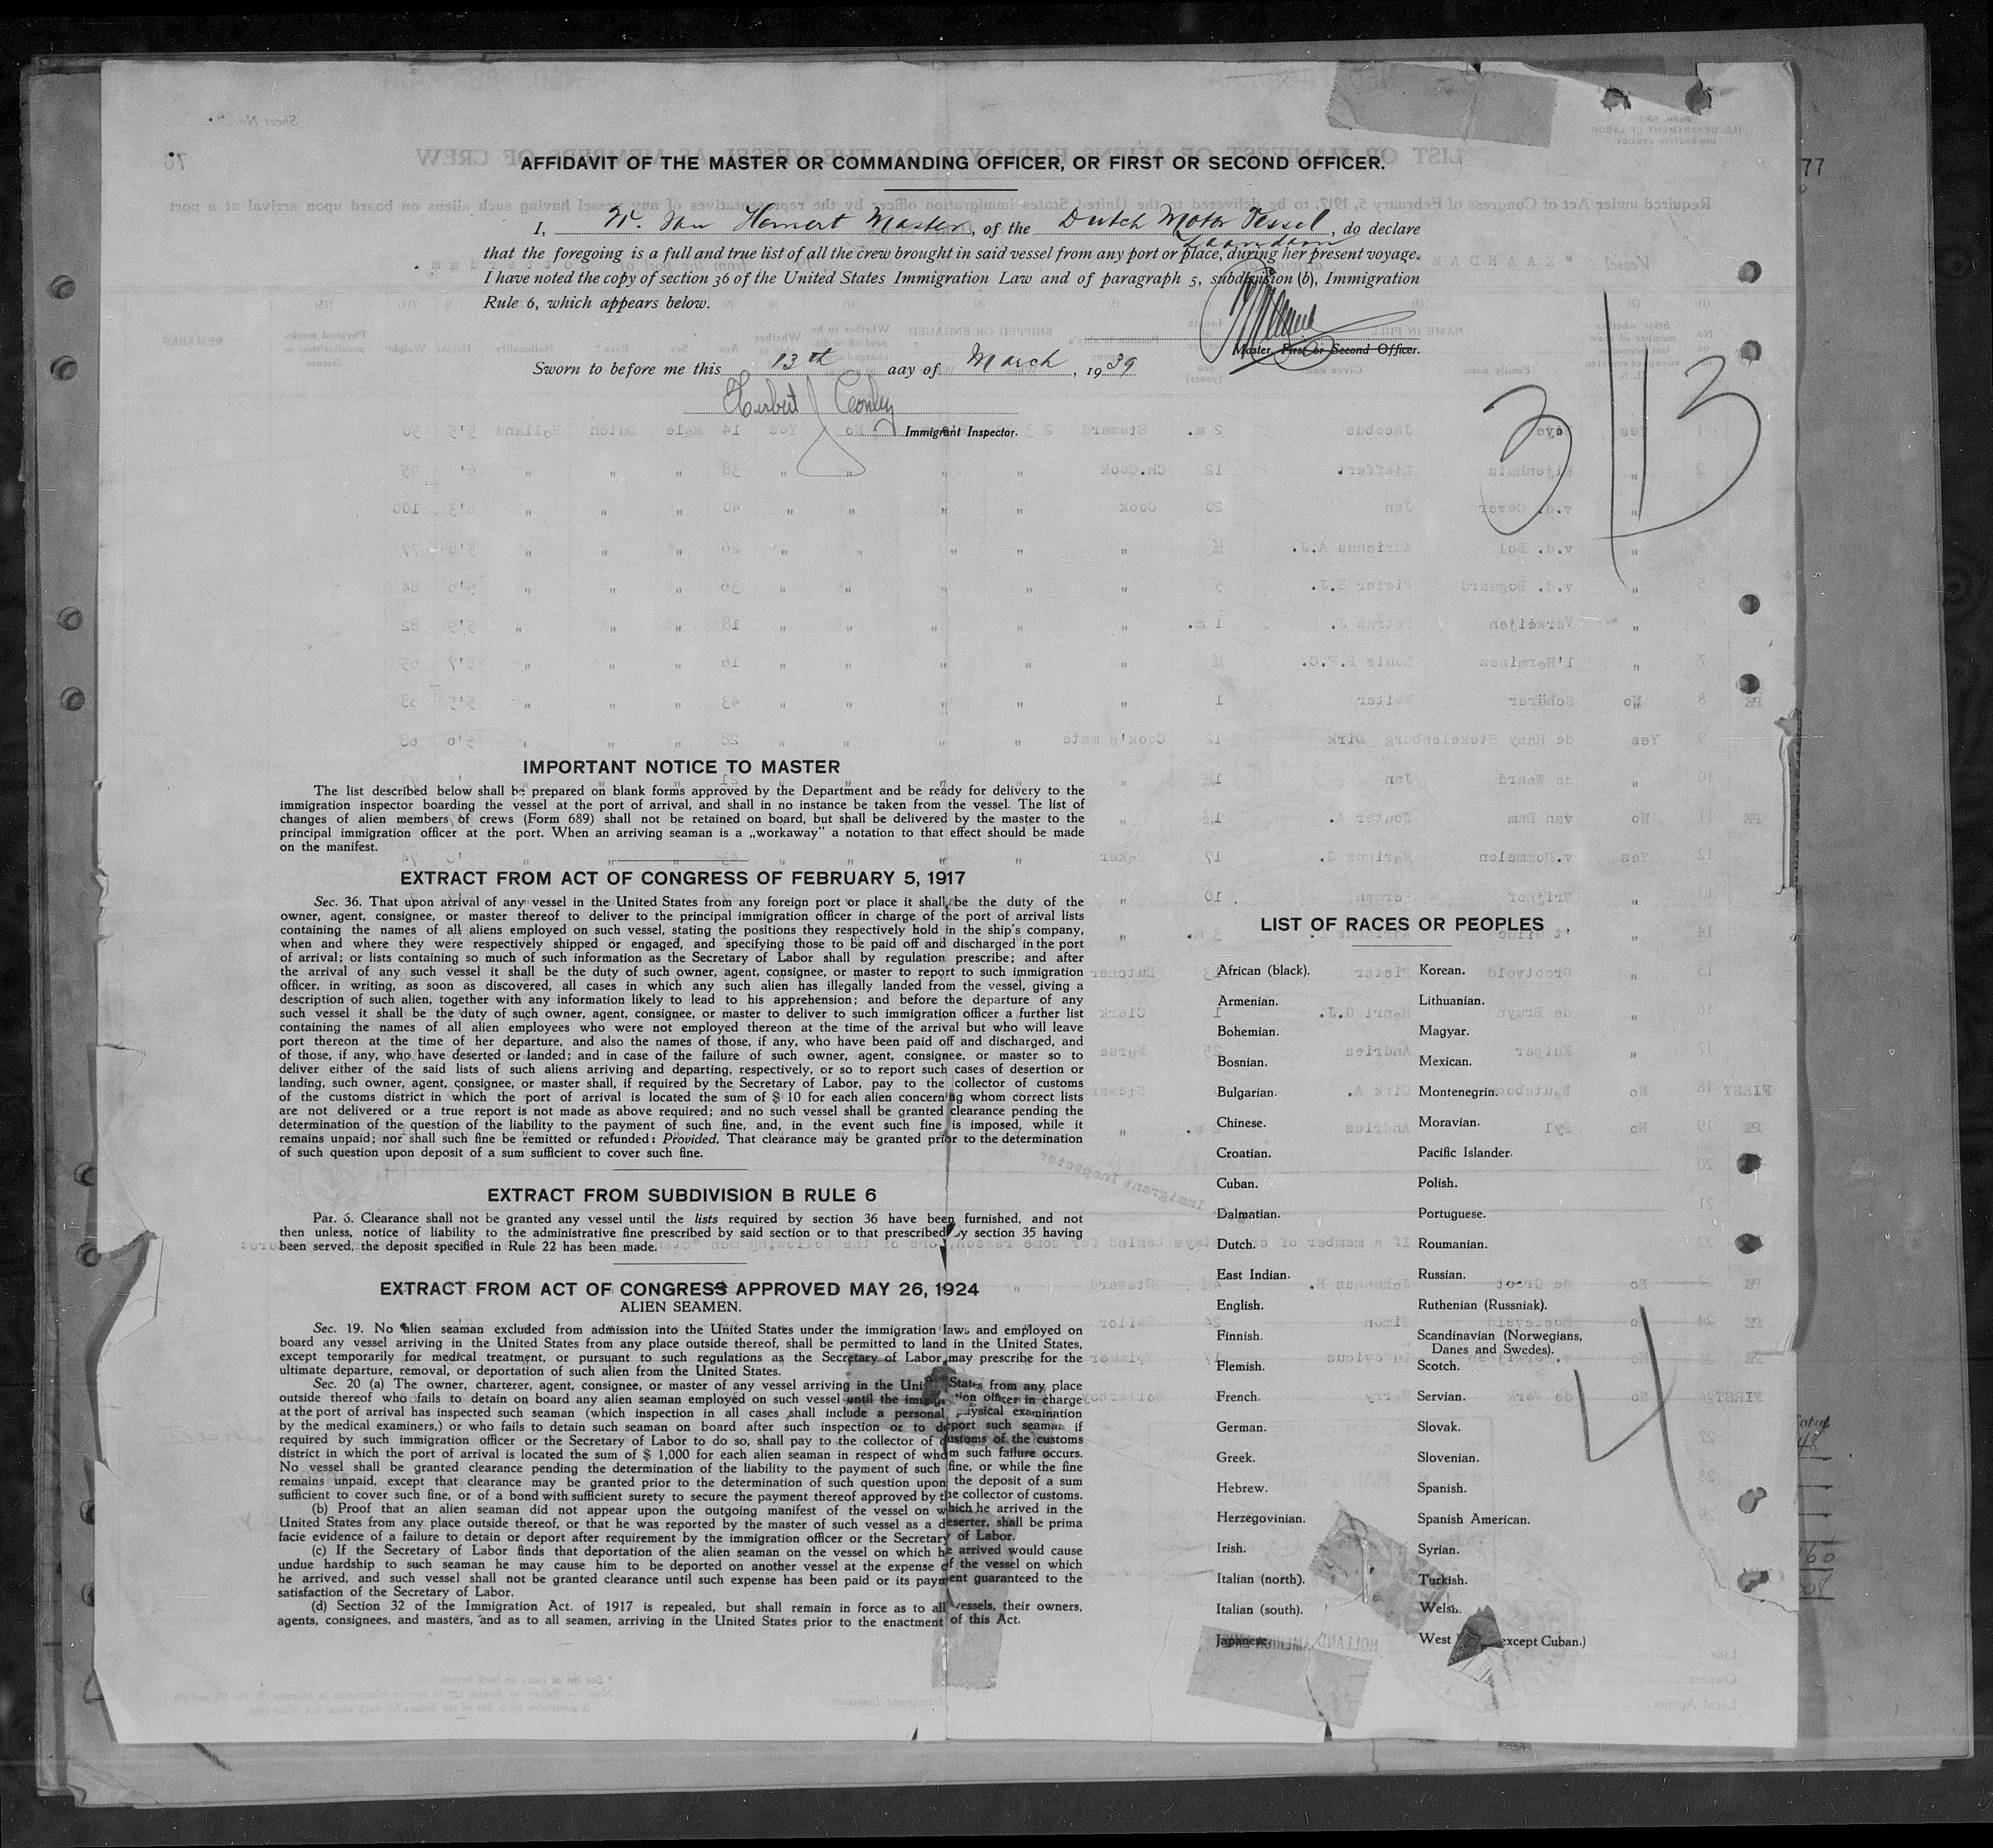 AFFIDAVIT OF THE MASTER OR COMMANDING OFFICER, OR FIRST OR SECOND OFFICER.
77
I, W. Van Hemert Master, of the Dutch Motor Vessel, do declare
Zaandam
that the foregoing is a full and true list of all the crew brought in said vessel from any port or place, during her present voyage.
I have noted the copy of section 36 of the United States Immigration Law and of paragraph 5, subdivision (b), Immigration
Rule 6, which appears below.
Master, First or Second Officer.
Sworn to before me this 13th day of March, 1939
Herbert J Conley
Immigrant Inspector.
3 13
IMPORTANT NOTICE TO MASTER
The list described below shall be prepared on blank forms approved by the Department and be ready for delivery to the
immigration inspector boarding the vessel at the port of arrival, and shall in no instance be taken from the vessel. The list of
changes of alien members of crews (Form 689) shall not be retained on board, but shall be delivered by the master to the
principal immigration officer at the port. When an arriving seaman is a „workaway” a notation to that effect should be made
on the manifest.
EXTRACT FROM ACT OF CONGRESS OF FEBRUARY 5, 1917
Sec. 36. That upon arrival of any vessel in the United States from any foreign port or place it shall be the duty of the
owner, agent, consignee, or master thereof to deliver to the principal immigration officer in charge of the port of arrival lists
containing the names of all aliens employed on such vessel, stating the positions they respectively hold in the ship's company,
when and where they were respectively shipped or engaged, and specifying those to be paid off and discharged in the port
of arrival; or lists containing so much of such information as the Secretary of Labor shall by regulation prescribe; and after
the arrival of any such vessel it shall be the duty of such owner, agent, consignee, or master to report to such immigration
officer, in writing, as soon as discovered, all cases in which any such alien has illegally landed from the vessel, giving a
description of such alien, together with any information likely to lead to his apprehension; and before the departure of any
such vessel it shall be the duty of such owner, agent, consignee, or master to deliver to such immigration officer a further list
containing the names of all alien employees who were not employed thereon at the time of the arrival but who will leave
port thereon at the time of her departure, and also the names of those, if any, who have been paid off and discharged, and
of those, if any, who have deserted or landed; and in case of the failure of such owner, agent, consignee, or master so to
deliver either of the said lists of such aliens arriving and departing, respectively, or so to report such cases of desertion or
landing, such owner, agent, consignee, or master shall, if required by the Secretary of Labor, pay to the collector of customs
of the customs district in which the port of arrival is located the sum of $ 10 for each alien concerning whom correct lists
are not delivered or a true report is not made as above required; and no such vessel shall be granted clearance pending the
determination of the question of the liability to the payment of such fine, and, in the event such fine is imposed, while it
remains unpaid; nor shall such fine be remitted or refunded: Provided, That clearance may be granted prior to the determination
of such question upon deposit of a sum sufficient to cover such fine.
EXTRACT FROM SUBDIVISION B RULE 6
Par. 6. Clearance shall not be granted any vessel until the lists required by section 36 have been furnished, and not
then unless, notice of liability to the administrative fine prescribed by said section or to that prescribed by section 35 having
been served, the deposit specified in Rule 22 has been made.
EXTRACT FROM ACT OF CONGRESS APPROVED MAY 26, 1924
ALIEN SEAMEN.
Sec. 19. No alien seaman excluded from admission into the United States under the immigration laws and employed on
board any vessel arriving in the United States from any place outside thereof, shall be permitted to land in the United States,
except temporarily for medical treatment, or pursuant to such regulations as the Secretary of Labor may prescribe for the
ultimate departure, removal, or deportation of such alien from the United States.
Sec. 20 (a) The owner, charterer, agent, consignee, or master of any vessel arriving in the United States from any place
outside thereof who fails to detain on board any alien seaman employed on such vessel until the immigration officer in charge
at the port of arrival has inspected such seaman (which inspection in all cases shall include a personal physical examination
by the medical examiners,) or who fails to detain such seaman on board after such inspection or to deport such seaman if
required by such immigration officer or the Secretary of Labor to do so, shall pay to the collector of customs of the customs
district in which the port of arrival is located the sum of $ 1,000 for each alien seaman in respect of whom such failure occurs.
No vessel shall be granted clearance pending the determination of the liability to the payment of such fine, or while the fine
remains unpaid, except that clearance may be granted prior to the determination of such question upon the deposit of a sum
sufficient to cover such fine, or of a bond with sufficient surety to secure the payment thereof approved by the collector of customs.
(b) Proof that an alien seaman did not appear upon the outgoing manifest of the vessel on which he arrived in the
United States from any place outside thereof, or that he was reported by the master of such vessel as a deserter, shall be prima
facie evidence of a failure to detain or deport after requirement by the immigration officer or the Secretary of Labor.
(c) If the Secretary of Labor finds that deportation of the alien seaman on the vessel on which he arrived would cause
undue hardship to such seaman he may cause him to be deported on another vessel at the expense of the vessel on which
he arrived, and such vessel shall not be granted clearance until such expense has been paid or its payment guaranteed to the
satisfaction of the Secretary of Labor.
(d) Section 32 of the Immigration Act. of 1917 is repealed, but shall remain in force as to all vessels, their owners,
agents, consignees, and masters, and as to all seamen, arriving in the United States prior to the enactment of this Act.
LIST OF RACES OR PEOPLES
African (black). Korean.
Armenian. Lithuanian.
Bohemian. Magyar.
Bosnian. Mexican.
Bulgarian. Montenegrin.
Chinese. Moravian.
Croatian. Pacific Islander.
Cuban. Polish.
Dalmatian. Portuguese.
Dutch. Roumanian.
East Indian. Russian.
English. Ruthenian (Russniak).
Finnish. Scandinavian (Norwegians,
Danes and Swedes).
Flemish. Scotch.
French. Servian.
German. Slovak.
Greek. Slovenian.
Hebrew. Spanish.
Herzegovinian. Spanish American.
Irish. Syrian.
Italian (north). Turkish.
Italian (south). Welsh.
Japanese. West (except Cuban.)
4